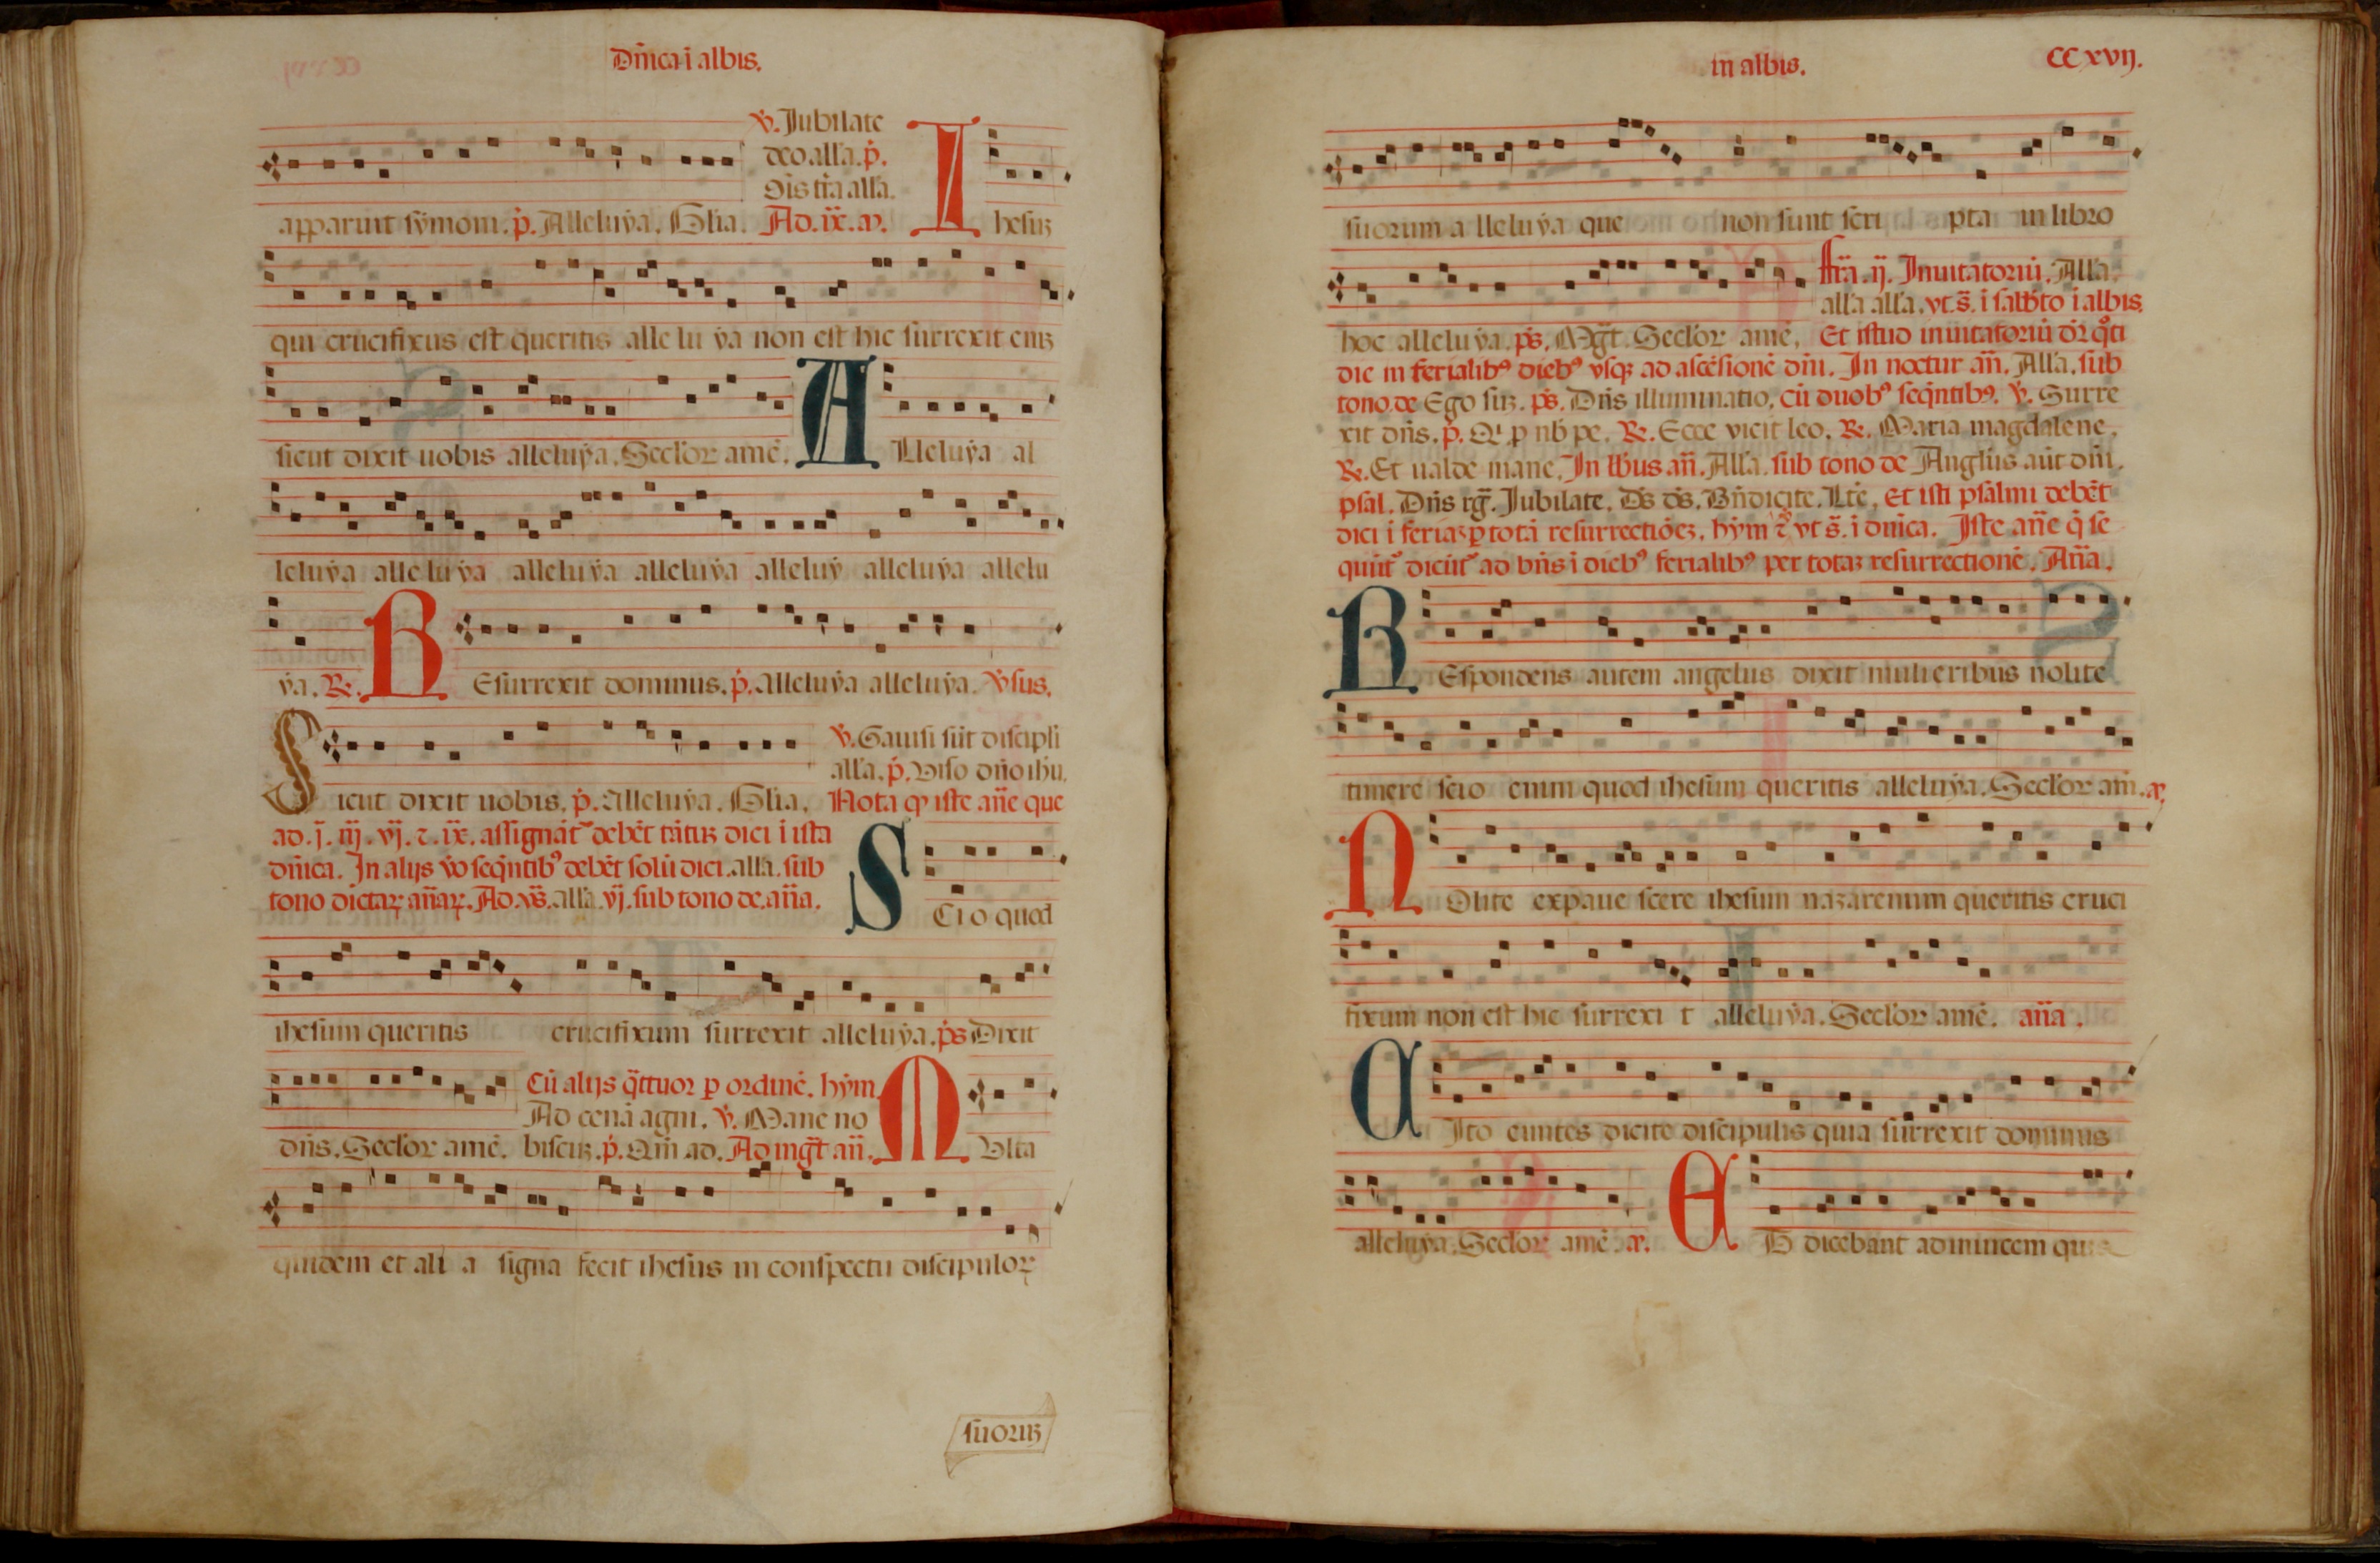 Dn̄ica ī albis.
℣. Jubilate
deo all'a. p̄.
Oīs tr̄a all'a.
apparuit sẏmoni. p̄. Alleluẏa. Gl'ia. Ad. ix. a. Ihesuʒ
qui crucifixus est queritis alle lu ẏa non est hic surrexit eniʒ
sicut dixit uobis alleluẏa. Secl'or amē. ALleluẏa al
leluẏa alle lu ẏa alleluẏa alleluẏa alleluẏ alleluẏa allelu
ẏa. ℟. REsurrexit dominus. p̄. Alleluẏa alleluẏa. ℣sus.
℣. Gauisi sūt discipli
all'a. p̄. Viso dn̄o ihū.
Sicut dixit uobis. p̄. Alleluẏa. Gl'ia. Nota ꝙ iste an̄e que
ad. j. iij. vj. ⁊. ix. assignāt᷑ debēt tātuʒ dici ī ista
dn̄ica. In alijs v̊o seq̄ntibꝰ debēt solū dici. all'a. sub
tono dictaꝝ an̄aꝝ. Ad. v̄s. all'a. vj. sub tono de. an̄a.
SCi o quod
ihesum queritis crucifixum surrexit alleluẏa. p̄s Dixit
Cū alijs q̄ttuor ꝑ ordinē. hẏm.
Ad cenā agni. ℣. Mane no
dn̄s. Secl'or amē. biscuʒ. p̄. Qm̄ ad. Ad mḡt an̄. MVlta
quidem et ali a signa fecit ihesus in conspectu discipuloꝝ
suoruʒ
in albis. CCxvij.
suorum a lleluẏa que non sunt scri pta in libro
fr̄a. ij. Inuitatoriū. All'a.
all'a all'a. vt. s̄. ī sabb'to ī albis.
hoc alleluẏa. p̄s. Mḡt. Secl'or amē. Et istud inuitatoriū dr̄ q̊ti
die in ferialibꝰ diebꝰ vsqꝫ ad ascēsionē dn̄i. In noctur an̄. All'a. sub
tono. de Ego suʒ. p̄s. Dn̄s illuminatio. cū duobꝰ seq̄ntibꝰ. ℣. Surre
xit dn̄s. p̄. Q ͥ p nb̄ pe. ℟. Ecce vicit leo. ℟. Maria magdalene.
℟. Et ualde mane. In lb̄us an̄. All'a. sub tono de Angl'us aūt dn̄i.
psal. Dn̄s rḡ. Jubilate. Ds̄ ds̄. Bn̄dicite. Ltē. Et isti psalmi debēt
dici ī feriaʒ ꝑ totā resurrectiōeʒ. hẏm ⁊ ͦ vt s̄. ī dnīca. Iste an̄e q̄ se
quūt᷑ dicūt᷑ ad bn̄s ī diebꝰ ferialibꝰ per totaʒ resurrectionē. An̄a.
REspondens autem angelus dixit mulieribus nolite
timere scio enim quod ihesum queritis alleluẏa. Secl'or am̄. a.
NOlite expaue scere ihesum nazarenum queritis cruci
fixum non est hic surrexi t alleluẏa. Secl'or amē. an̄a.
CIto euntes dicite discipulis quia surrexit dominus
alleluẏa. Secl'or amē a. ET dicebant adinuicem quis